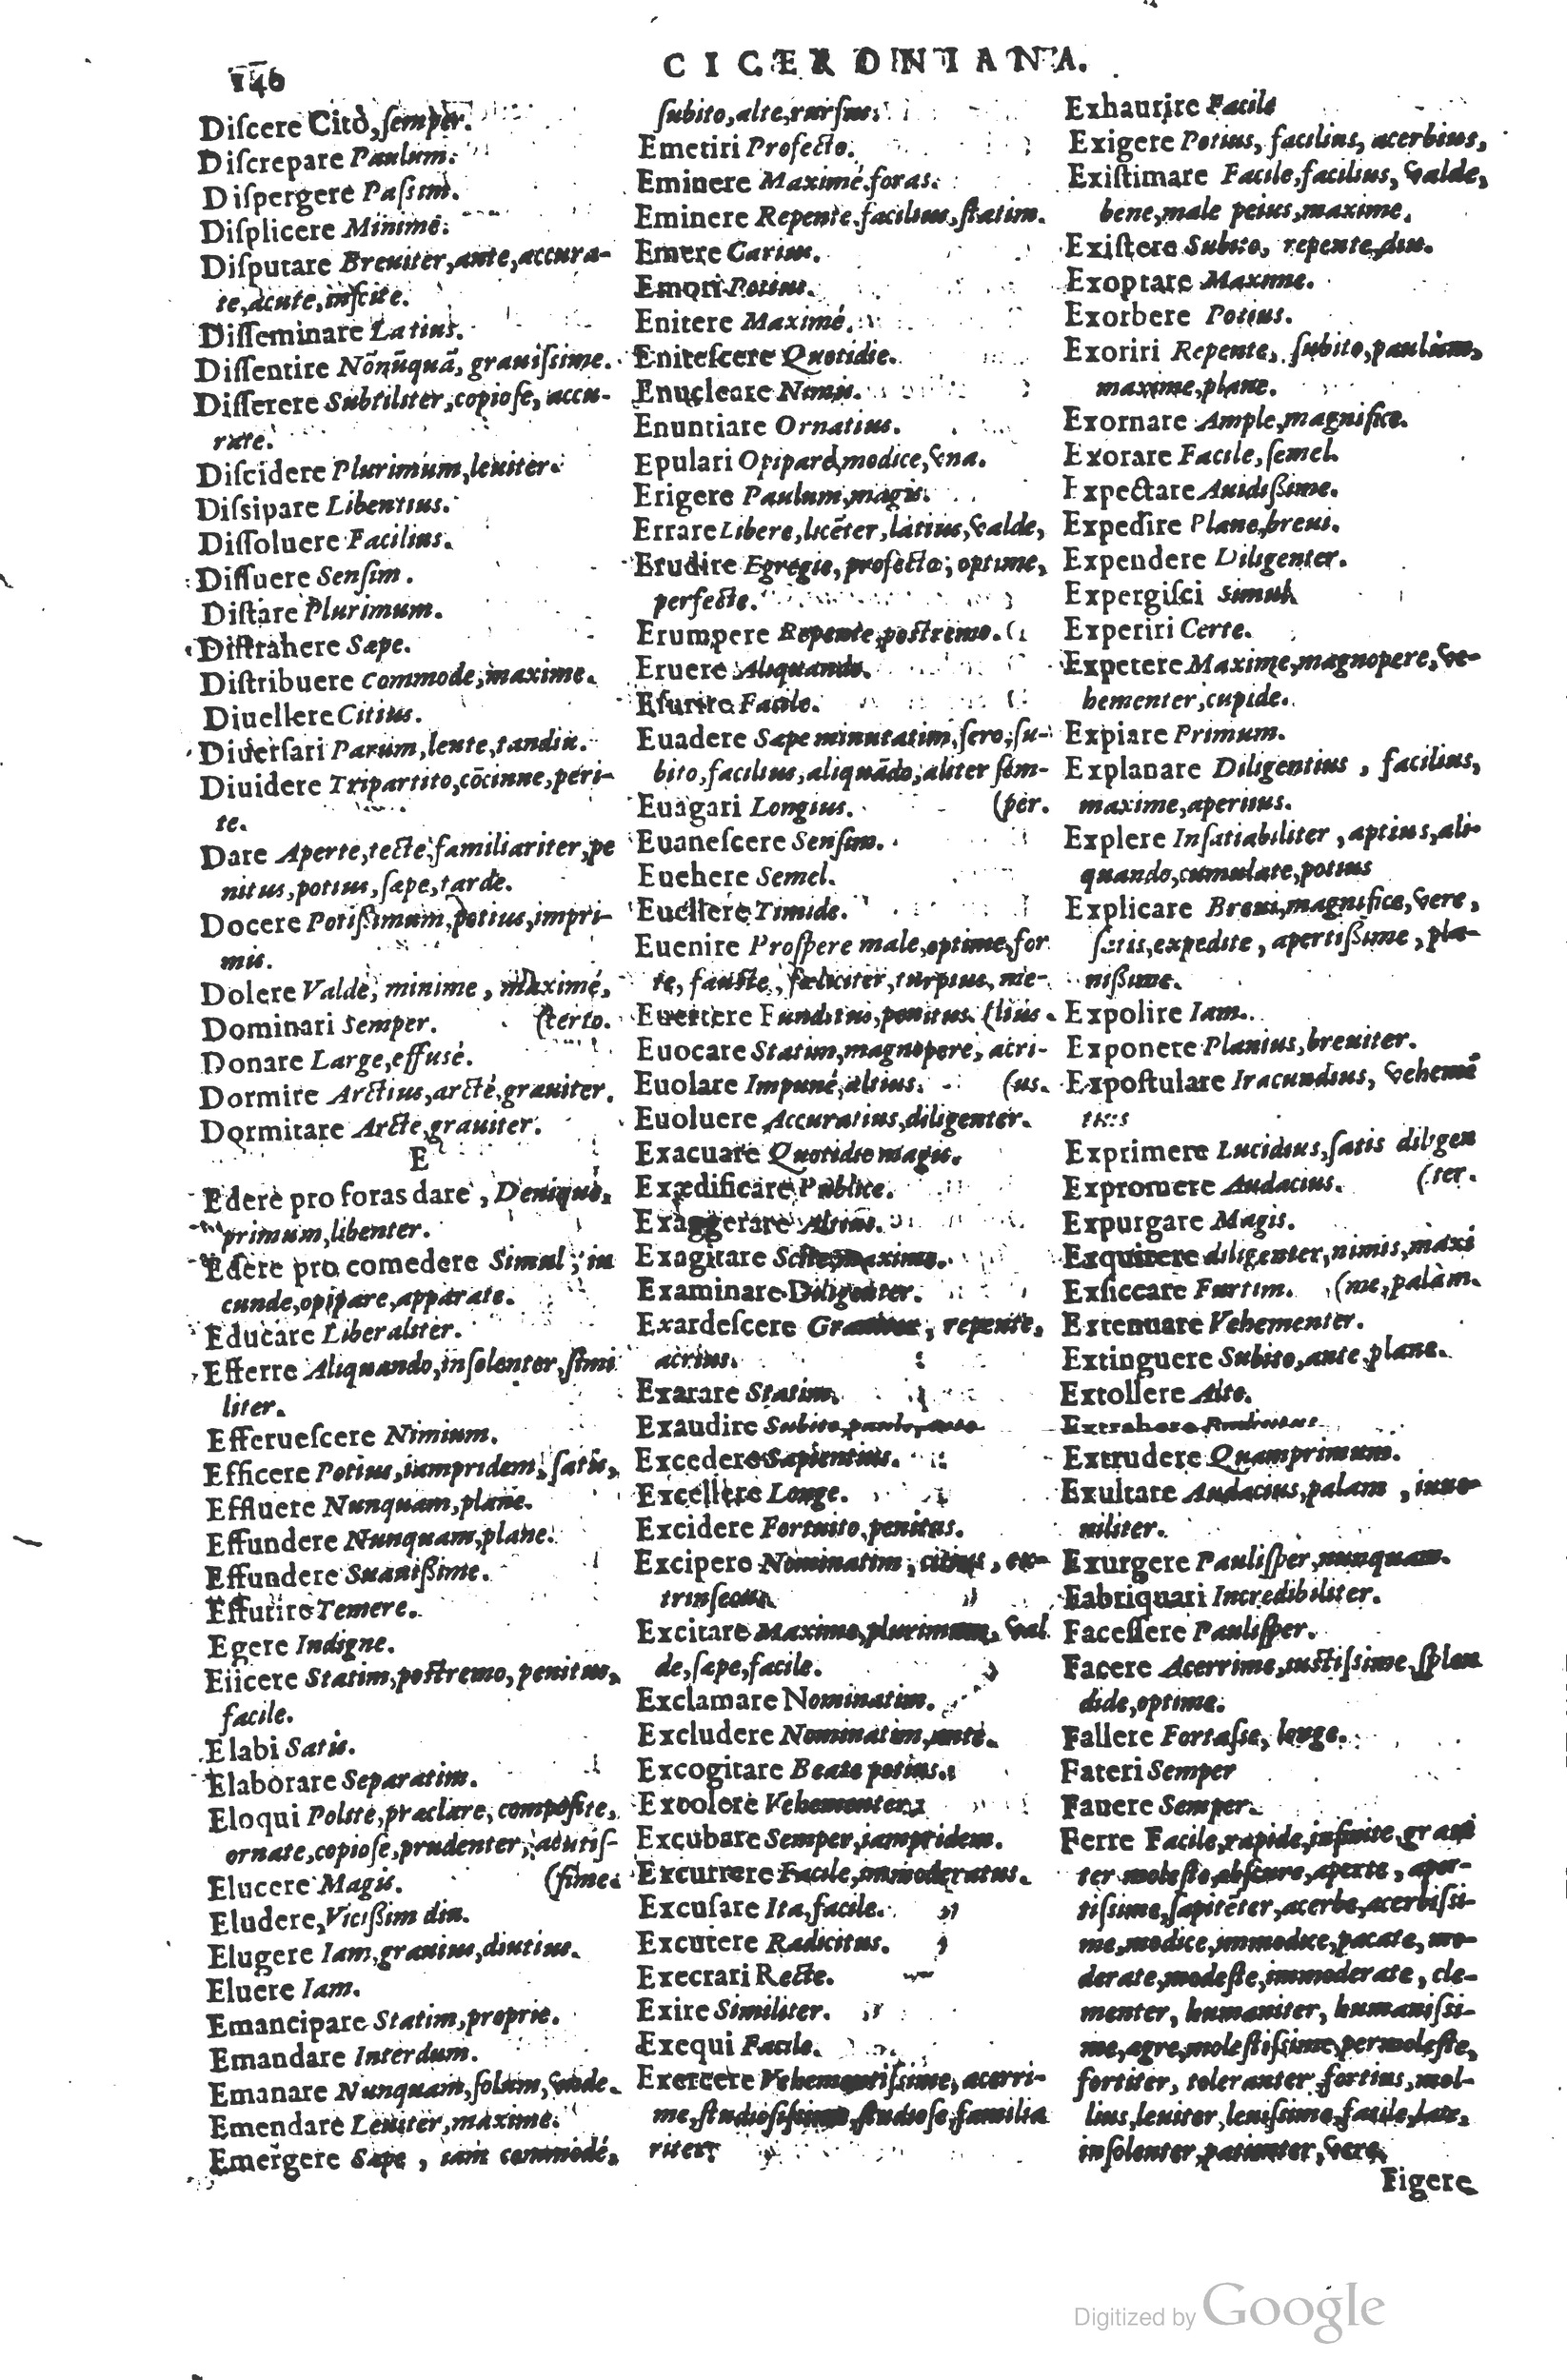 146
CICERONIANA.
Discere Citò, semper.
Discrepare Paulum.
Dispergere Passim.
Displicere Minimè.
Disputare Breuiter, ante, accura-
te, acute, inscite.
Disseminare Latius.
Dissentire Nõnũquã, grauissime.
Disserere Subtiliter, copiose, accu-
rate.
Discidere Plurimum, leuiter.
Dissipare Libentius.
Dissoluere Facilius.
Dissuere Sensim.
Distare Plurimum.
Distrahere Sæpe.
Distribuere commode, maxime.
Diuellere Citius.
Diuersari Parum, lente, tandiu.
Diuidere Tripartito, cõcinne, peri-
te.
Dare Aperte, tecte, familiariter, pe
nitus, potius, sæpe, tarde.
Docere Potißimum, potius, impri-
mis.
Dolere Valdè, minime, maximé,
Dominari Semper. (certo.
Donare Large, effusè.
Dormire Arctius, arctè, grauiter.
Dormitare Arcte, grauiter.
E
Edere pro foras dare, Denique,
primum, libenter.
Edere pro comedere Simul, iu
cunde, opipare, apparate.
Educare Liberaliter.
Efferre Aliquando, insolenter, simi
liter.
Efferuescere Nimium.
Efficere Potius, iampridem, satis,
Effluere Nunquam, plane.
Effundere Nunquam, plane.
Effundere Suauißime.
Effutire Temere.
Egere Indigne.
Eiicere Statim, postremo, penitus,
facile.
Elabi Satis.
Elaborare Separatim.
Eloqui Politè, præclare, composite,
ornate, copiose, prudenter, acutis-
Elucere Magis. (sime.
Eludere, Vicißim diu.
Elugere Iam, grauius, diutius.
Eluere Iam.
Emancipare Statim, proprie.
Emandare Interdum.
Emanare Nunquam, solum, vnde.
Emendare Leuiter, maxime.
Emergere Sæpe, iam commodé,
subito, alte, rursus.
Emetiri Profecto.
Eminere Maximé foras.
Eminere Repente, facilius, statim.
Emere Carius.
Emori Potius.
Enitere Maximé.
Enitescere Quotidie.
Enucleare Nimis.
Enuntiare Ornatius.
Epulari Opiparè, modice, vna.
Erigere Paulum, magis.
Errare Libere, licẽter, latius, valde,
Erudire Egregie, profecto, optime,
perfecte.
Erumpere Repente, postremo.
Eruere Aliquando.
Esurire Facile.
Euadere Sæpe minutatim, sero, su-
bito, facilius, aliquãdo, aliter sem-
Euagari Longius. (per.
Euanescere Sensim.
Euehere Semel.
Euellere Timide.
Euenire Prospere male, optime, for
te, fauste, fœliciter, turpius, me-
Euertere Funditus, penitus. (lius.
Euocare Statim, magnopere, acri-
Euolare Impuné, altius. (us.
Euoluere Accuratius, diligenter.
Exacuare Quotidie magis.
Exædificare Publice.
Exaggerare Altius.
Exagitare Scite, maxime.
Examinare Diligenter.
Exardescere Grauius, repente,
acrius.
Exarare Statim.
Exaudire Subito, paulo, ante
Excedere Sapientius.
Excellere Longe.
Excidere Fortuito, penitus.
Excipere Nominatim, citius, ex-
trinsecus.
Excitare Maxime, plurimum, val
de, sæpe, facile.
Exclamare Nominatim.
Excludere Nominatim, ante.
Excogitare Beate potius.
Excolere Vehementer.
Excubare Semper, iampridem.
Excurrere Facile, immoderatus.
Excusare Ita, facile.
Excutere Radicitus.
Execrari Recte.
Exire Similiter.
Exequi Facile.
Exercere Vehementissime, acerri-
me, studiosissime, studiose, familia
riter.
Exhaurire Facile
Exigere Potius, facilius, acerbius,
Existimare Facile, facilius, valde,
bene, male peius, maxime.
Existere Subito, repente, diu.
Exoptare Maxime.
Exorbere Potius.
Exoriri Repente, subito, paulum,
maxime, plane.
Exornare Ample, magnifice.
Exorare Facile, semel.
Expectare Auidißime.
Expedire Plane, breui.
Expendere Diligenter.
Expergisci simul.
Experiri Certe.
Expetere Maxime, magnopere, ve-
hementer, cupide.
Expiare Primum.
Explanare Diligentius, facilius,
maxime, apertius.
Explere Insatiabiliter, aptius, ali-
quando, cumulate, potius
Explicare Breui, magnifice, vere,
satis, expedite, apertißime, pla-
nißime.
Expolire Iam.
Exponere Planius, breuiter.
Expostulare Iracundius, vehemẽ
tius
Exprimere Lucidius, satis diligen
Expromere Audacius. (ter.
Expurgare Magis.
Exquirere diligenter, nimis, maxi
Exsiccare Furtim. (me, palàm.
Extenuare Vehementer.
Extinguere Subito, ante, plane.
Extollere Alte.
Extrahere Radicitus
Extrudere Quamprimum.
Exultare Audacius, palam, iuue-
niliter.
Exurgere Paulisper, nunquam.
Fabriquari Incredibiliter.
Facessere Paulisper.
Facere Acerrime, iustissime, splen
dide, optime.
Fallere Fortasse, longe.
Fateri Semper
Fauere Semper.
Ferre Facile, rapide, infinite, graui
ter moleste, obscure, aperte, aper-
tissime, sapiẽter, acerbe, acerbissi-
me, modice, immodice, pacate, mo-
derate, modeste, immoderate, cle-
menter, humaniter, humanissi-
me, ægre, molestissime, permoleste,
fortiter, toleranter, fortius, mol-
lius, leuiter, leuissime, facile, late,
insolenter, patienter, vere.
Figere
Digitized by Google